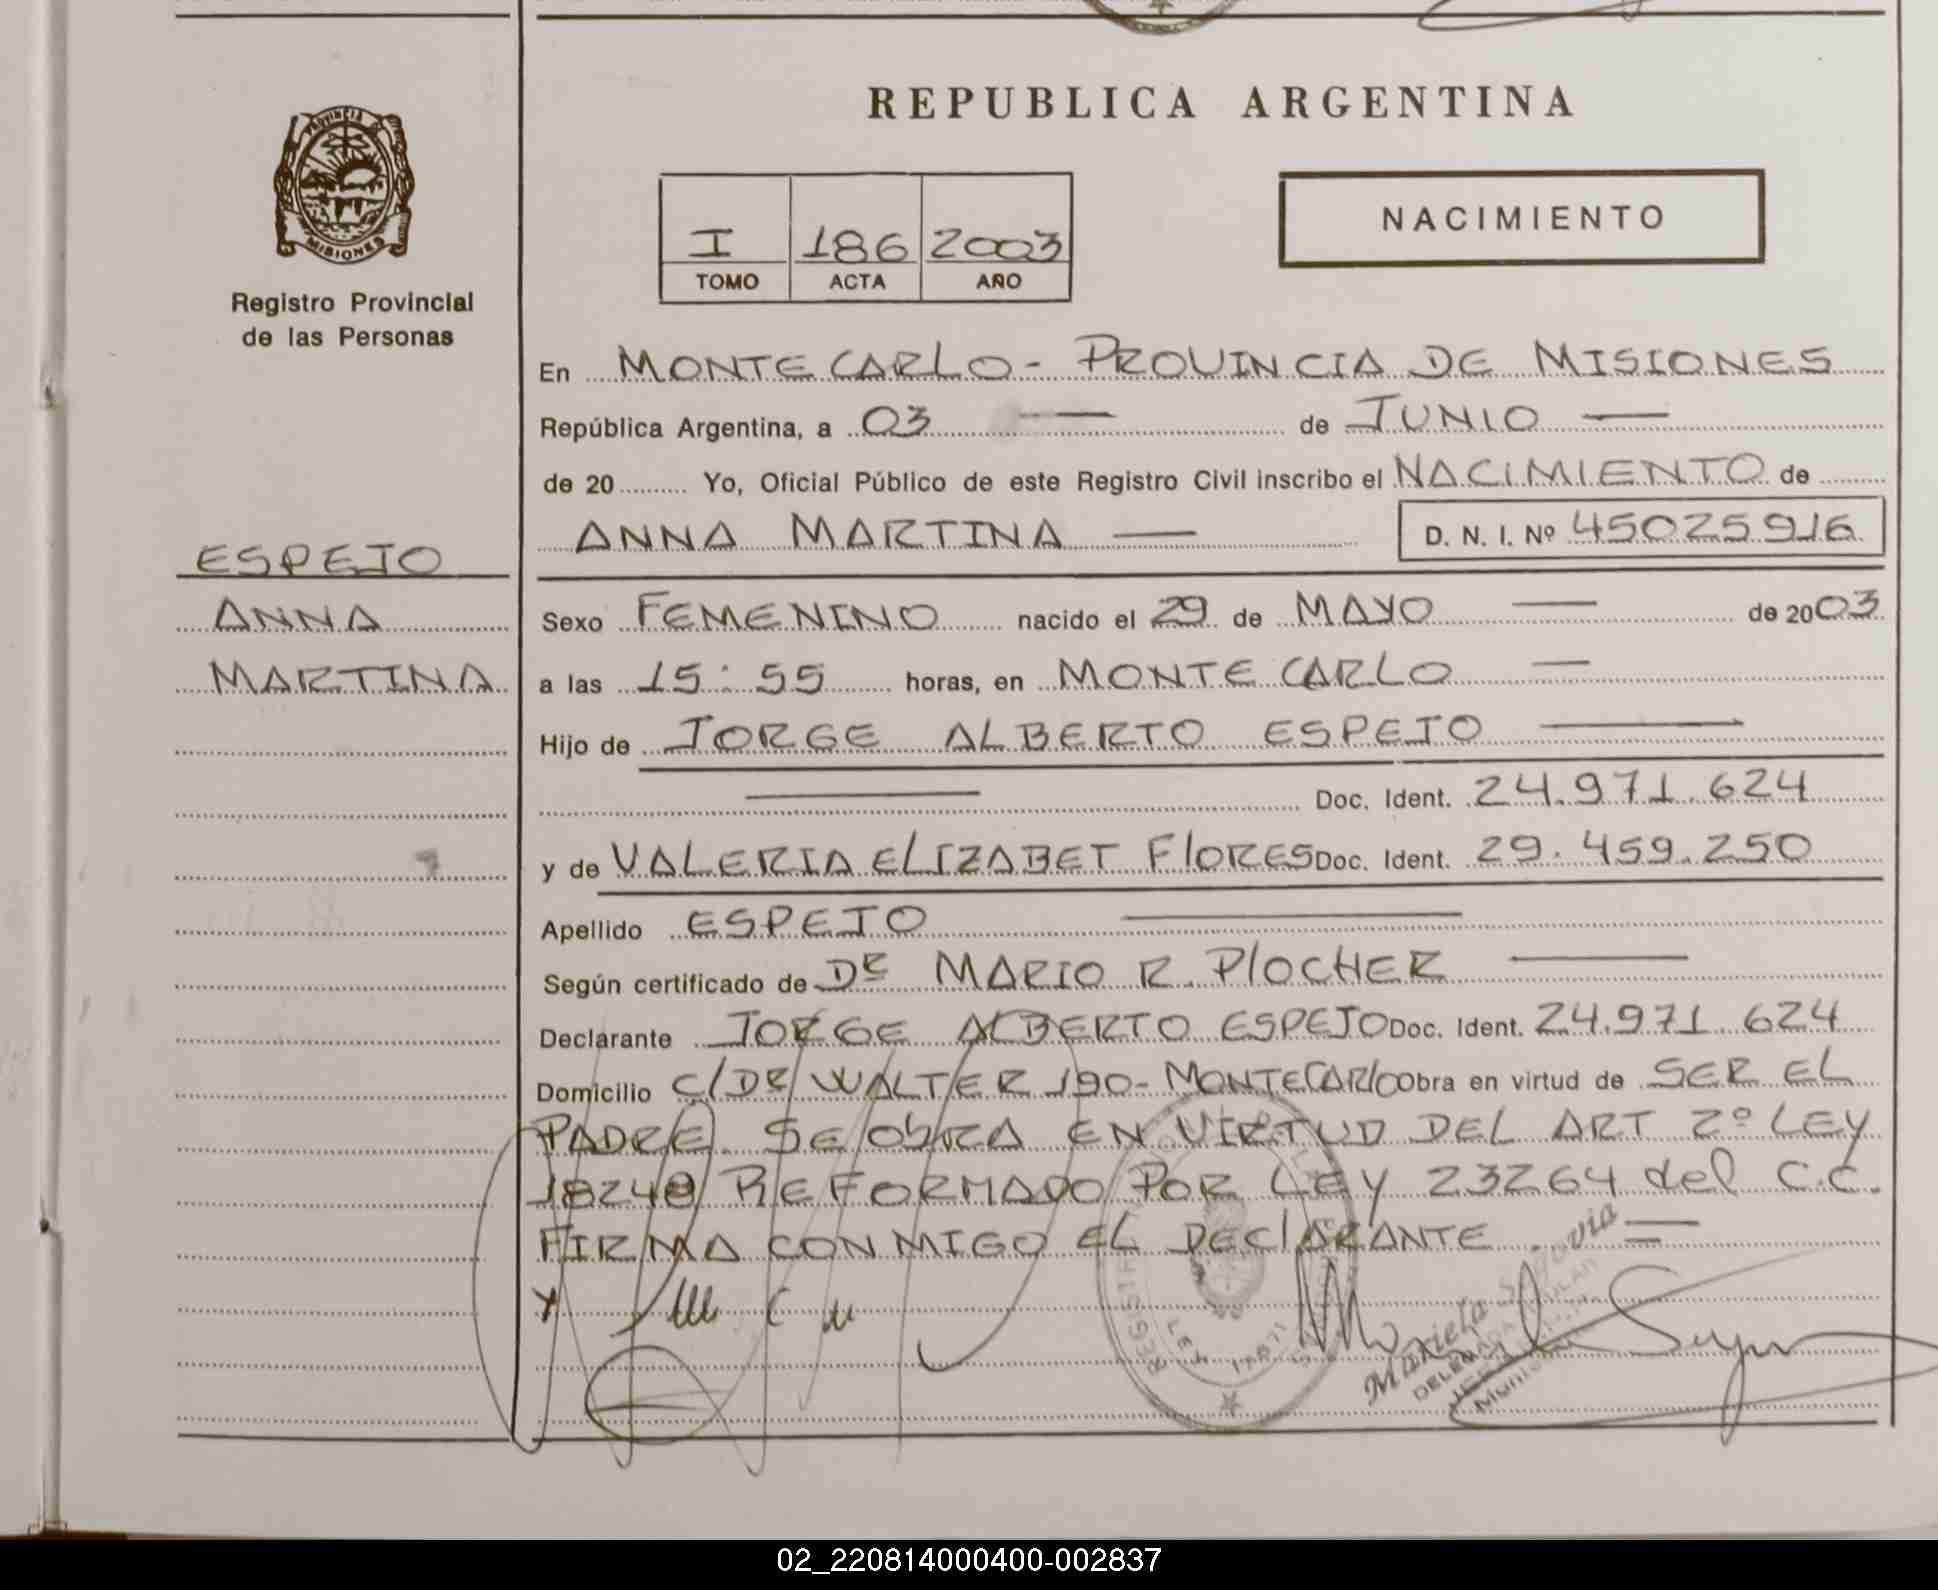 PROVINCIA DE
MISIONES
Registro Provincial
de las Personas
ESPEJO
ANNA
MARTINA
REPUBLICA ARGENTINA
I 186 2003
TOMO ACTA AÑO
NACIMIENTO
En MONTECARLO - PROVINCIA DE MISIONES
República Argentina, a 03 — de JUNIO —
de 20 ......... Yo, Oficial Público de este Registro Civil inscribo el NACIMIENTO de
ANNA MARTINA — D. N. I. Nº 45025916
Sexo FEMENINO nacido el 29 de MAYO — de 2003
a las 15:55 horas, en MONTE CARLO —
Hijo de JORGE ALBERTO ESPEJO —
— Doc. Ident. 24.971.624
y de VALERIA ELIZABET FlORES Doc. Ident. 29.459.250
Apellido ESPEJO —
Según certificado de DR MARIO R. PlOCHER —
Declarante JORGE ALBERTO ESPEJO Doc. Ident. 24.971.624
Domicilio C/DR WALTER 190- MONTECARlO Obra en virtud de SER EL
PADRE. SE ObRA EN VIRTUD DEL ART 2º LEY
18248 REFORMADO POR LEY 23264 del C.C.
FIRMA CONMIGO EL DEClARANTE. =
LEY
Mariela Segovia
02_220814000400-002837